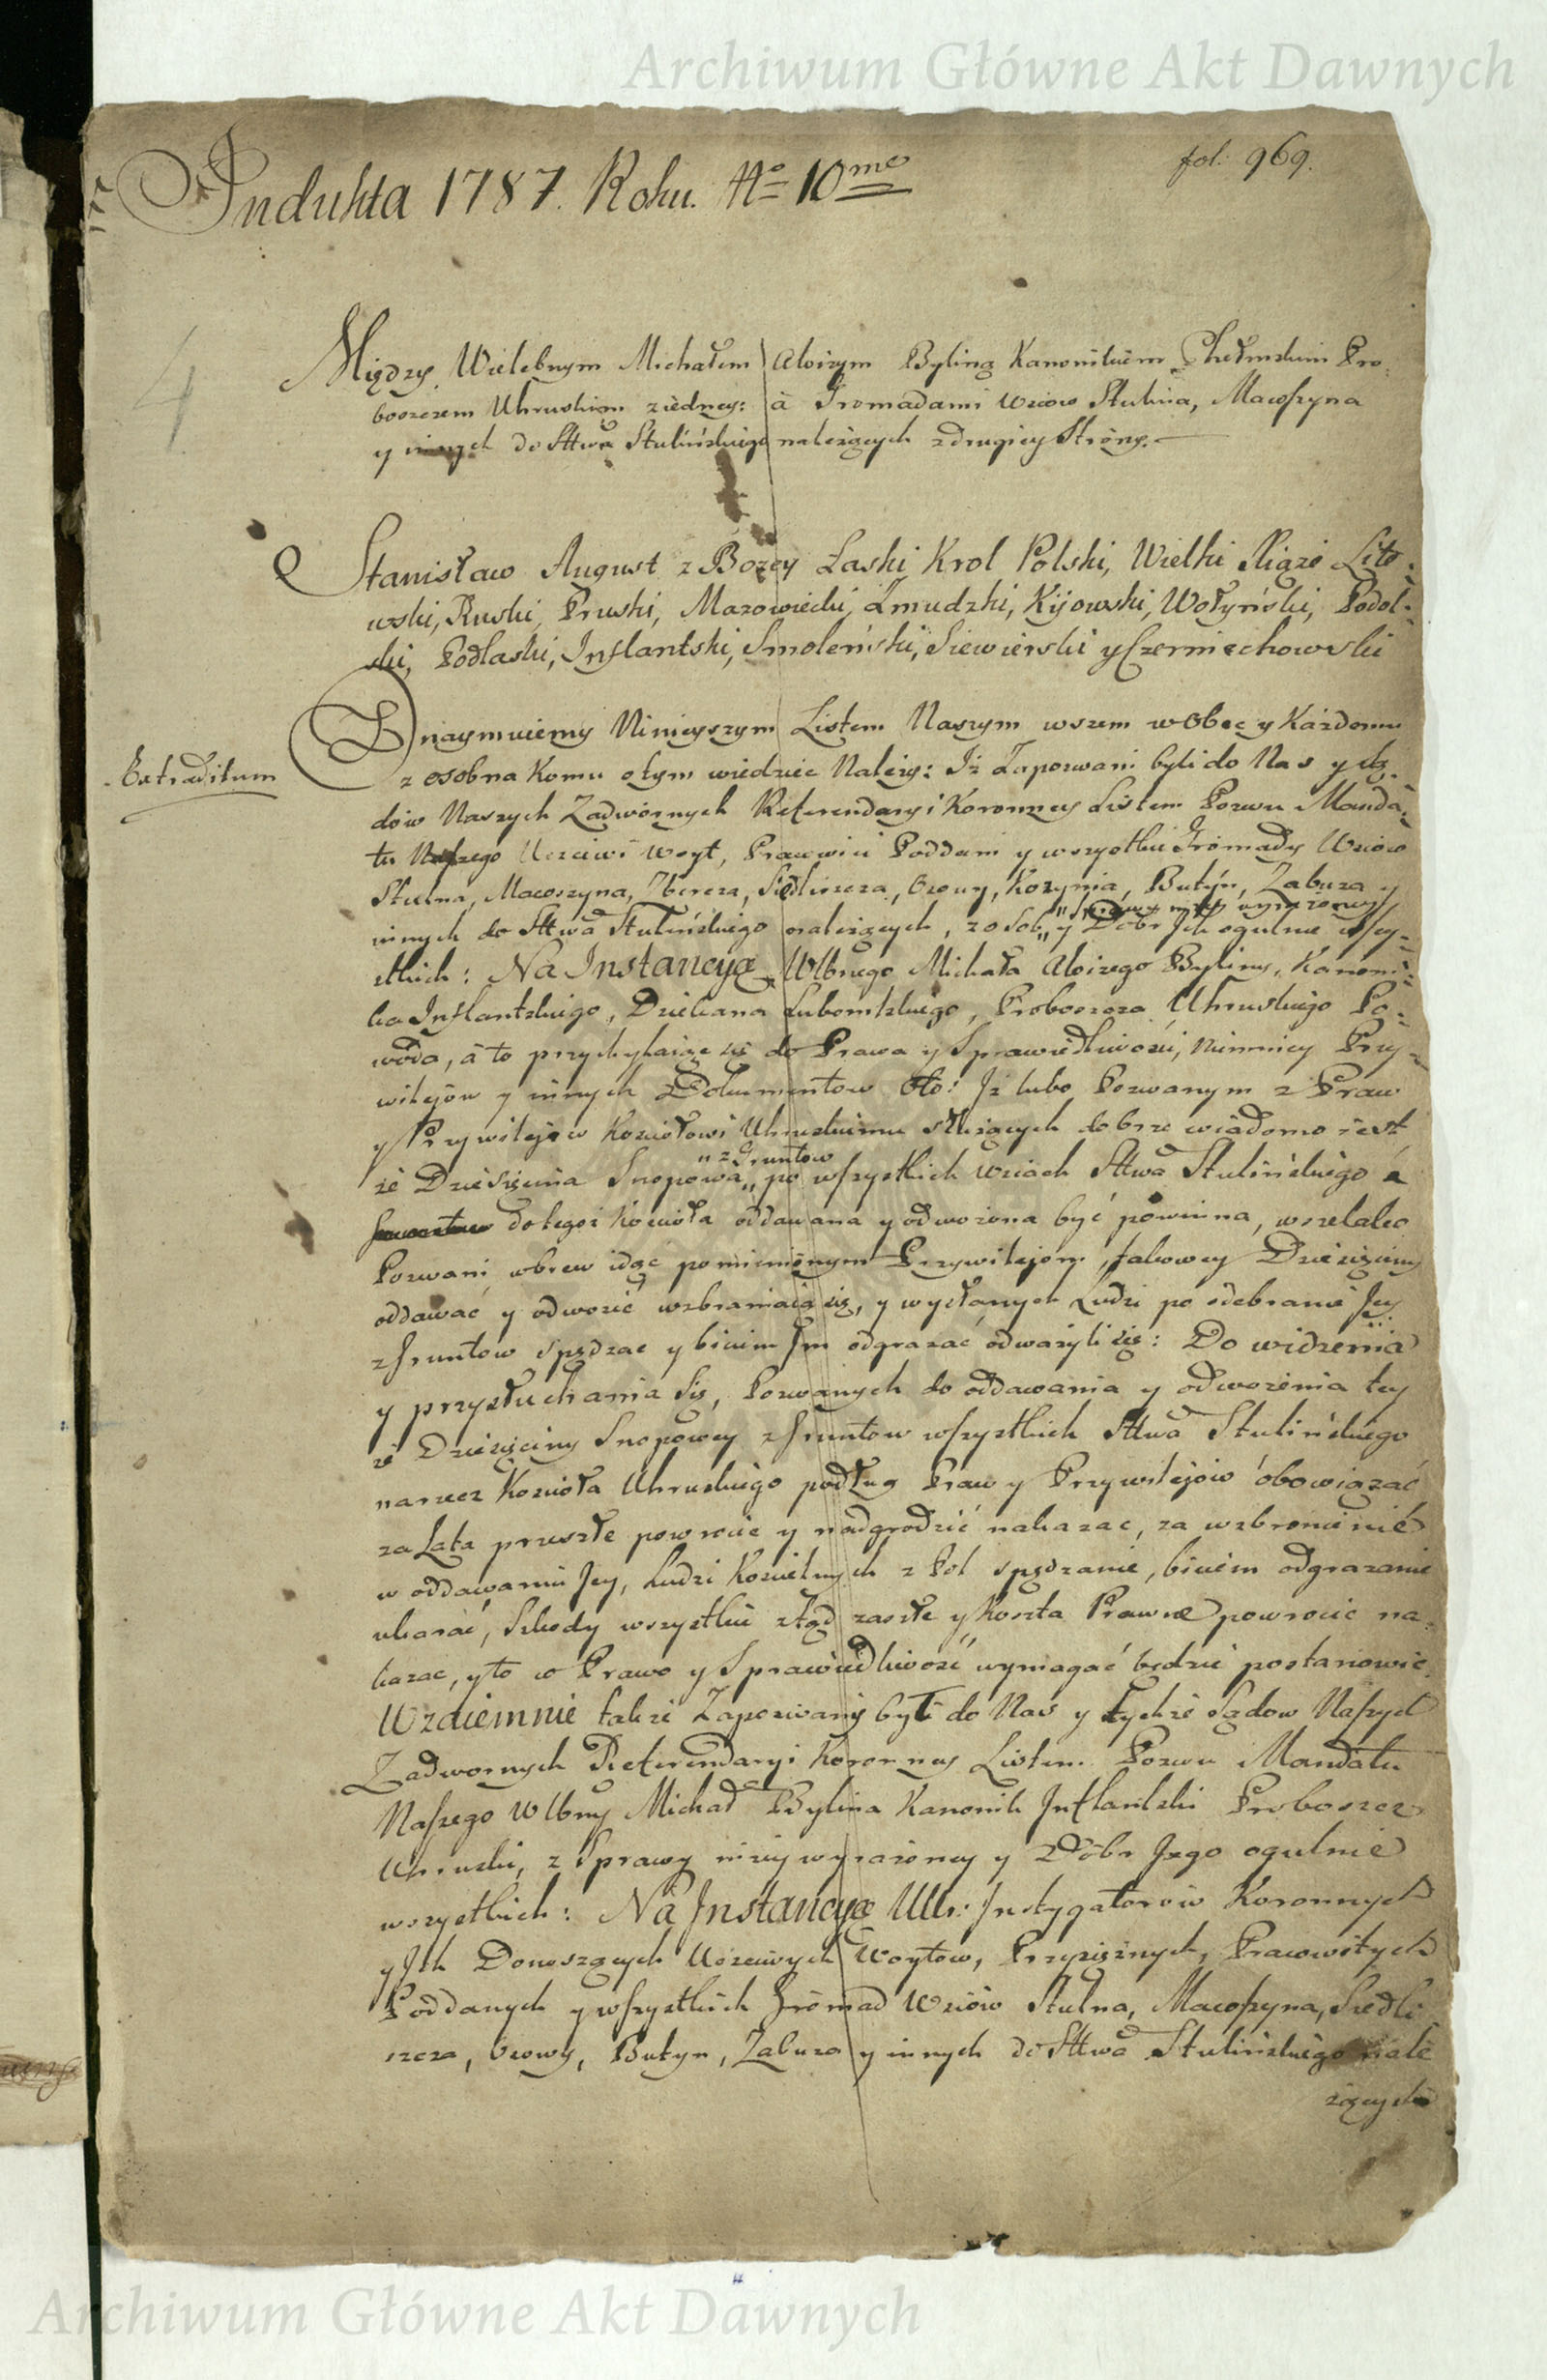 Archiwum Główne Akt Dawnych
fol: 969.
Indukta 1787. Roku. N<u>o</u> 10<u>mo</u>
4
Między Wielebnym Michałem Aloizym Byliną Kanonikiem Chełmskim Pro-
boszczem Uhruskim ziedney: à Gromadami Wsiow Stulna, Macoszyna
y innych do Sttwa Stulińskiego należących zdrugiey Strony.
Stanisław August z Bozey Łaski Krol Polski, Wielki Xiąże Lito-
wski, Ruski, Pruski, Mazowiecki, Żmudzki, Kijowski, Wołyński, Podol-
ski, Podlaski, Inflantski, Smoleński, Siewierski y Czerniechowski
Extraditum
Znaymuiemy Ninieyszym Listem Naszym wszem wobec y Każdemu
z osobna Komu otym wiedzieć Należy: Iż Zapozwani byli do Nas y Są-
dow Naszych Zadwornych Referendaryi Koronney Listem Pozwu Manda-
tu Naszego Uczciwi Woyt, Pracowici Poddani y wszystkie Gromady Wsiow
Stulna, Macoszyna, Zbereza, Siedliszcza, Osowy, Kozynia, Butyn, Zabuza y
"Sprawy niżey wyrażoney
innych do Sttwa Stulińskiego należących, zosob „ y Dobr Ich ogulnie wszy-
stkich: Na Instancyą Wlbnego Michała Aloizego Byliny, Kanoni-
ka Inflantskiego, Dziekana Lubomlskiego, Proboszcza Uhruskiego Po-
woda, à to przychylaiąc się do Prawa y Sprawiedliwości, niemniey Przy-
wilejow y innych Dokumentow Oto: Iż lubo Pozwanym z Praw
y Przywilejow Kościołowi Uhruskiemu służących dobrze wiadomo iest
" z Gruntow
że Dziesięcina Snopowa „ po wszystkich Wsiach Sttwa Stulińskiego à
do tegoż Kościoła oddawana y odwożona być powinna, wszelako
Pozwani wbrew idąc pomienionym Przywilejom, takowey Dziesięciny
oddawać y odwozić wzbraniaią się, y wysłanych Ludzi po odebranie Jey
z Gruntow spędzac y biciem Im odgrazać odwazyli się: Do widzenia
y przysłuchania się, Pozwanych do oddawania y odwożenia tey
że Dziesięciny Snopowey z Gruntow wszystkich Sttwa Stulińskiego
narzecz Kościoła Uhruskiego podług Praw y Przywilejow obowiązać
za Lata przeszłe powrocić y nadgrodzić nakazac, za wzbronienie
w oddawaniu Jey, Ludzi Kościelnych z Pol spędzanie, biciem odgrazanie
ukarać, Szkody wszystkie ztąd zaszłe y Koszta Prawne powrocić na-
kazac, y to co Prawo y Sprawiedliwość wymagać będzie postanowić.
Wzaiemnie także Zapozwany był do Nas y tychże Sądow Naszych
Zadwornych Referendaryi Koronney Listem Pozwu Mandatu
Naszego Wlbny Michał Bylina Kanonik Inflantski Proboszcz
Uhruski, z Sprawy niżey wyrażoney y Dobr Jego ogulnie
wszystkich: Na Instancyą Ur: Instygatorow Koronnych
y Ich Donoszących Uczciwych Woytow, Przysiężnych, Pracowitych
Poddanych y wszystkich Gromad Wsiow Stulna, Macoszyna, Siedli
szcza, Osowy, Butyn, Zabuza y innych do Sttwa Stulińskiego nale
żących
Archiwum Główne Akt Dawnych